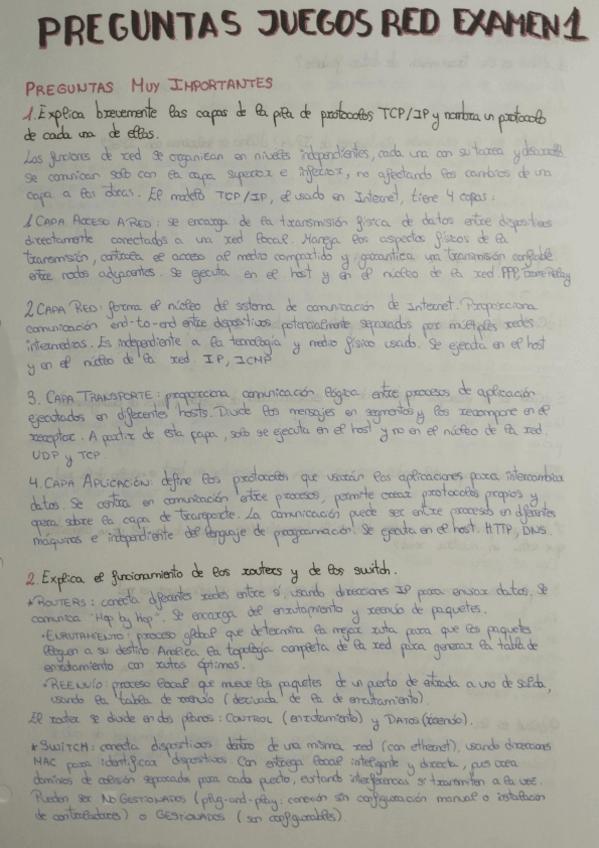 PREGUNTAS JUEGOS RED EXAMEN 1
PREGUNTAS MUY IMPORTANTES
1. Explica brevemente las capas de la pila de protocolos TCP/IP y nombra un protocolo
de cada una de ellas.
Las funciones de red se organizan en niveles independientes, cada una con su tarea y desarrollo.
Se comunican solo con la capa superior e inferior, no afectando los cambios de una
capa a las otras. El modelo TCP/IP, el usado en Internet, tiene 4 capas:
1. CAPA ACCESO A RED: se encarga de la transmisión física de datos entre dispositivos
directamente conectados a una red local. Maneja los aspectos físicos de la
transmisión, controla el acceso al medio compartido y garantiza una transmisión confiable
entre nodos adyacentes. Se ejecuta en el host y en el núcleo de la red. PPP, Frame Relay
2 CAPA RED: forma el núcleo del sistema de comunicación de Internet. Proporciona
comunicación end-to-end entre dispositivos potencialmente separados por múltiples redes
intermedias. Es independiente a la tecnología y medio físico usado. Se ejecuta en el host
y en el núcleo de la red. IP, ICMP
3. CAPA TRANSPORTE: proporciona comunicación lógica entre procesos de aplicación
ejecutados en diferentes hosts. Divide los mensajes en segmentos y los recompone en el
receptor. A partir de esta capa, solo se ejecuta en el host y no en el núcleo de la red.
UDP y TCP
4. CAPA APLICACIÓN: define los protocolos que usarán las aplicaciones para intercambiar
datos. Se centra en comunicación entre procesos, permite crear protocolos propios y
opera sobre la capa de transporte. La comunicación puede ser entre procesos en diferentes
máquinas e independiente del lenguaje de programación. Se ejecuta en el host. HTTP, DNS.
2. Explica el funcionamiento de los routers y de los switch.
* ROUTERS: conecta diferentes redes entre sí, usando direcciones IP para enviar datos. Se
comunica "Hop by Hop". Se encarga del enrutamiento y reenvío de paquetes.
• ENRUTAMIENTO: proceso global que determina la mejor ruta para que los paquetes
lleguen a su destino. Analiza la topología completa de la red para generar la tabla de
enrutamiento con rutas óptimas.
• REENVÍO: proceso local que mueve los paquetes de un puerto de entrada a uno de salida,
usando la tabla de reenvío (derivada de la de enrutamiento).
El router se divide en dos planos: CONTROL (enrutamiento) y DATOS (reenvío).
* SWITCH: conecta dispositivos dentro de una misma red (con ethernet), usando direcciones
MAC para identificar dispositivos. Con entrega local inteligente y directa, pues crea
dominios de colisión separados para cada puerto, evitando interferencias si transmiten a la vez.
Pueden ser NO GESTIONADOS (plug-and-play: conexión sin configuración manual o instalación
de controladores) o GESTIONADOS (son configurables).